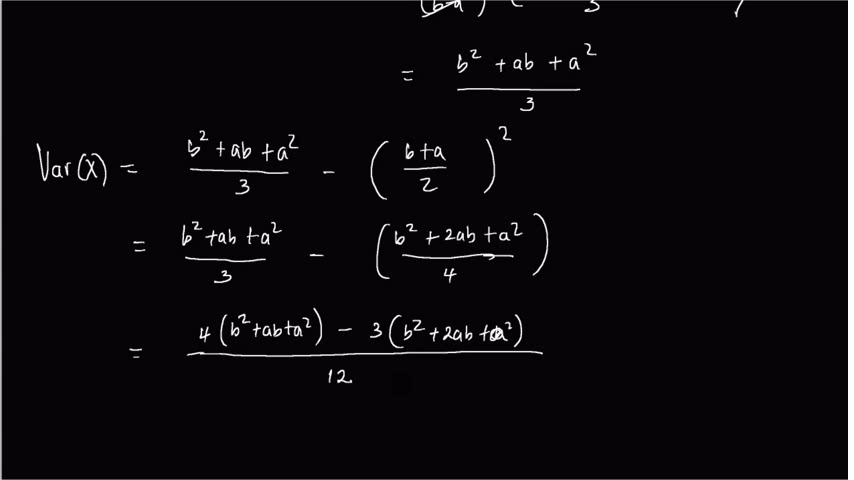 = (b² + ab + a²) / 3
Var(X) = (b² + ab + a²) / 3 − ((b + a) / 2)²
= (b² + ab + a²) / 3 − ((b² + 2ab + a²) / 4)
= (4(b² + ab + a²) − 3(b² + 2ab + a²)) / 12